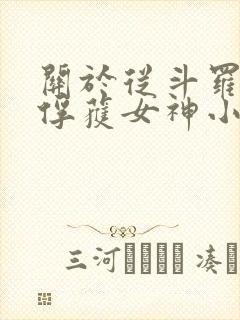 關於從斗羅
俘獲女神小
三河 湊